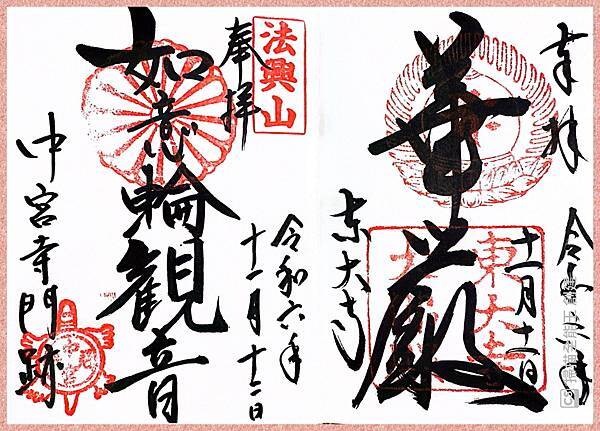 奉拝
華嚴
東大寺
十一月十二日
東大寺
法興山
奉拝
如意輪観音
令和六年
十一月十二日
中宮寺門跡